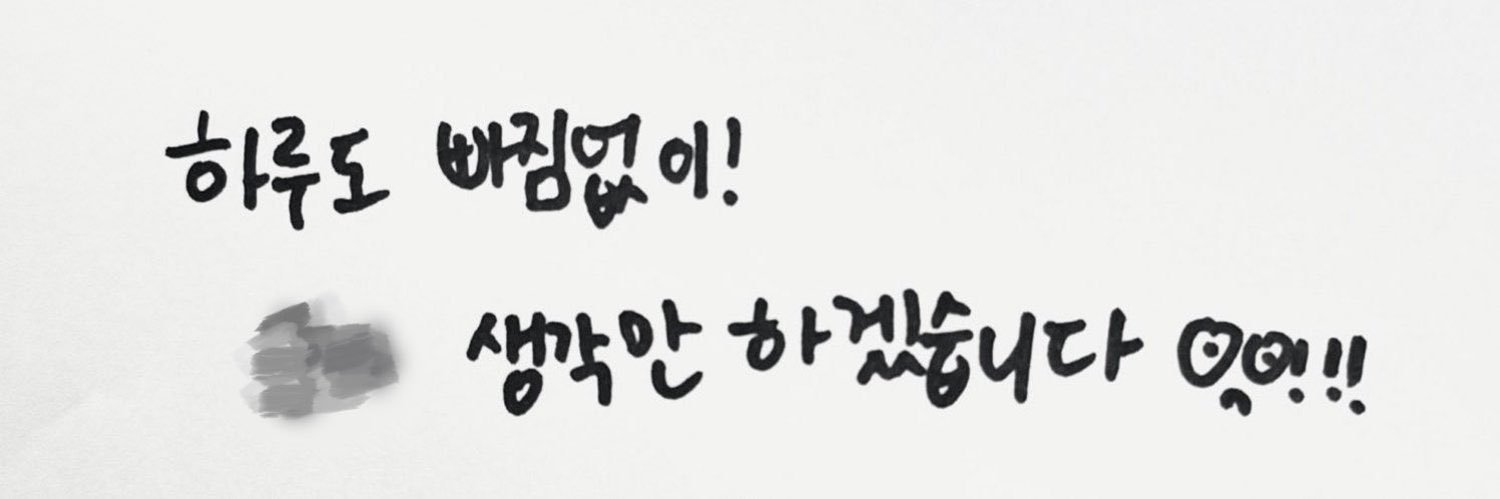 하루도 빠짐없이!
생각만 하겠습니다 !!!